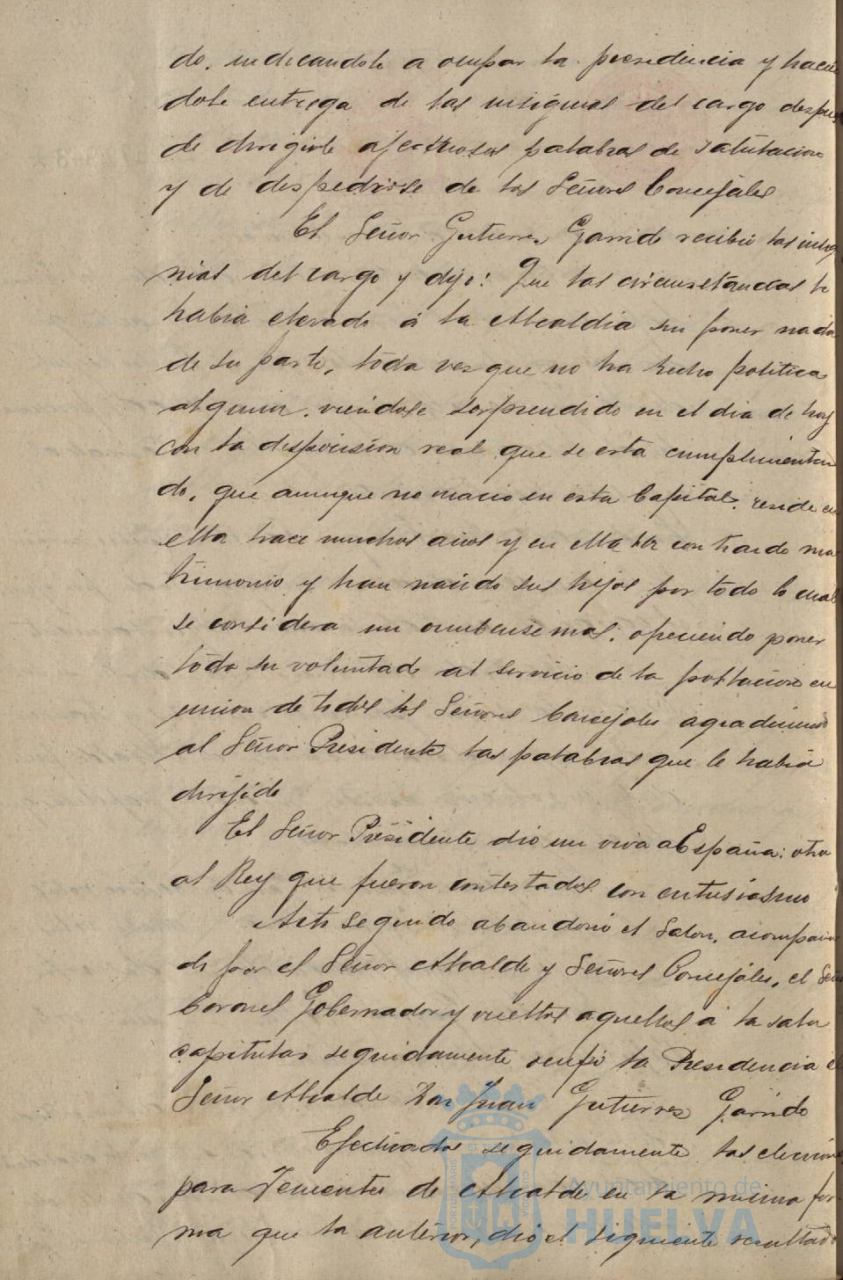 do, indicandole a ocupar la presidencia y hacien
dole entrega de las insignias del cargo despues
de dirigirle afectuosas palabras de salutacion
y de despedirse de los Señores Concejales
El Señor Gutierrez Garrido recibió las insig
nias del cargo y dijo: Que las circunstancias le
habia elevado á la Alcaldia sin poner nada
de su parte, toda vez que no ha hecho politica
alguna, viendose sorprendido en el dia de hoy
con la disposicion real que se está cumplimentan
do, que aunque no nacio en esta Capital, reside en
ella hace muchos años y en ella ha contraido ma
trimonio y han nacido sus hijos por todo lo cual
se considera un onubense mas, ofreciendo poner
toda su voluntad al servicio de la poblacion en
union de todos los Señores Concejales agradeciendo
al Señor Presidente las palabras que le habia
dirijido
El Señor Presidente dio un viva a España: otro
al Rey que fueron contestados con entusiasmo
Acto seguido abandonó el Salon, acompaña
do por el Señor Alcalde y Señores Concejales, el Señor
Coronel Gobernador y vueltos aquellos á la sala
capitular seguidamente ocupó la Presidencia el
Señor Alcalde Don Juan Gutierrez Garrido
Efectuadas seguidamente las eleccion
para Tenientes de Alcalde en la misma for
ma que la anterior, dió el siguiente resultado
Ayuntamiento de
HUELVA